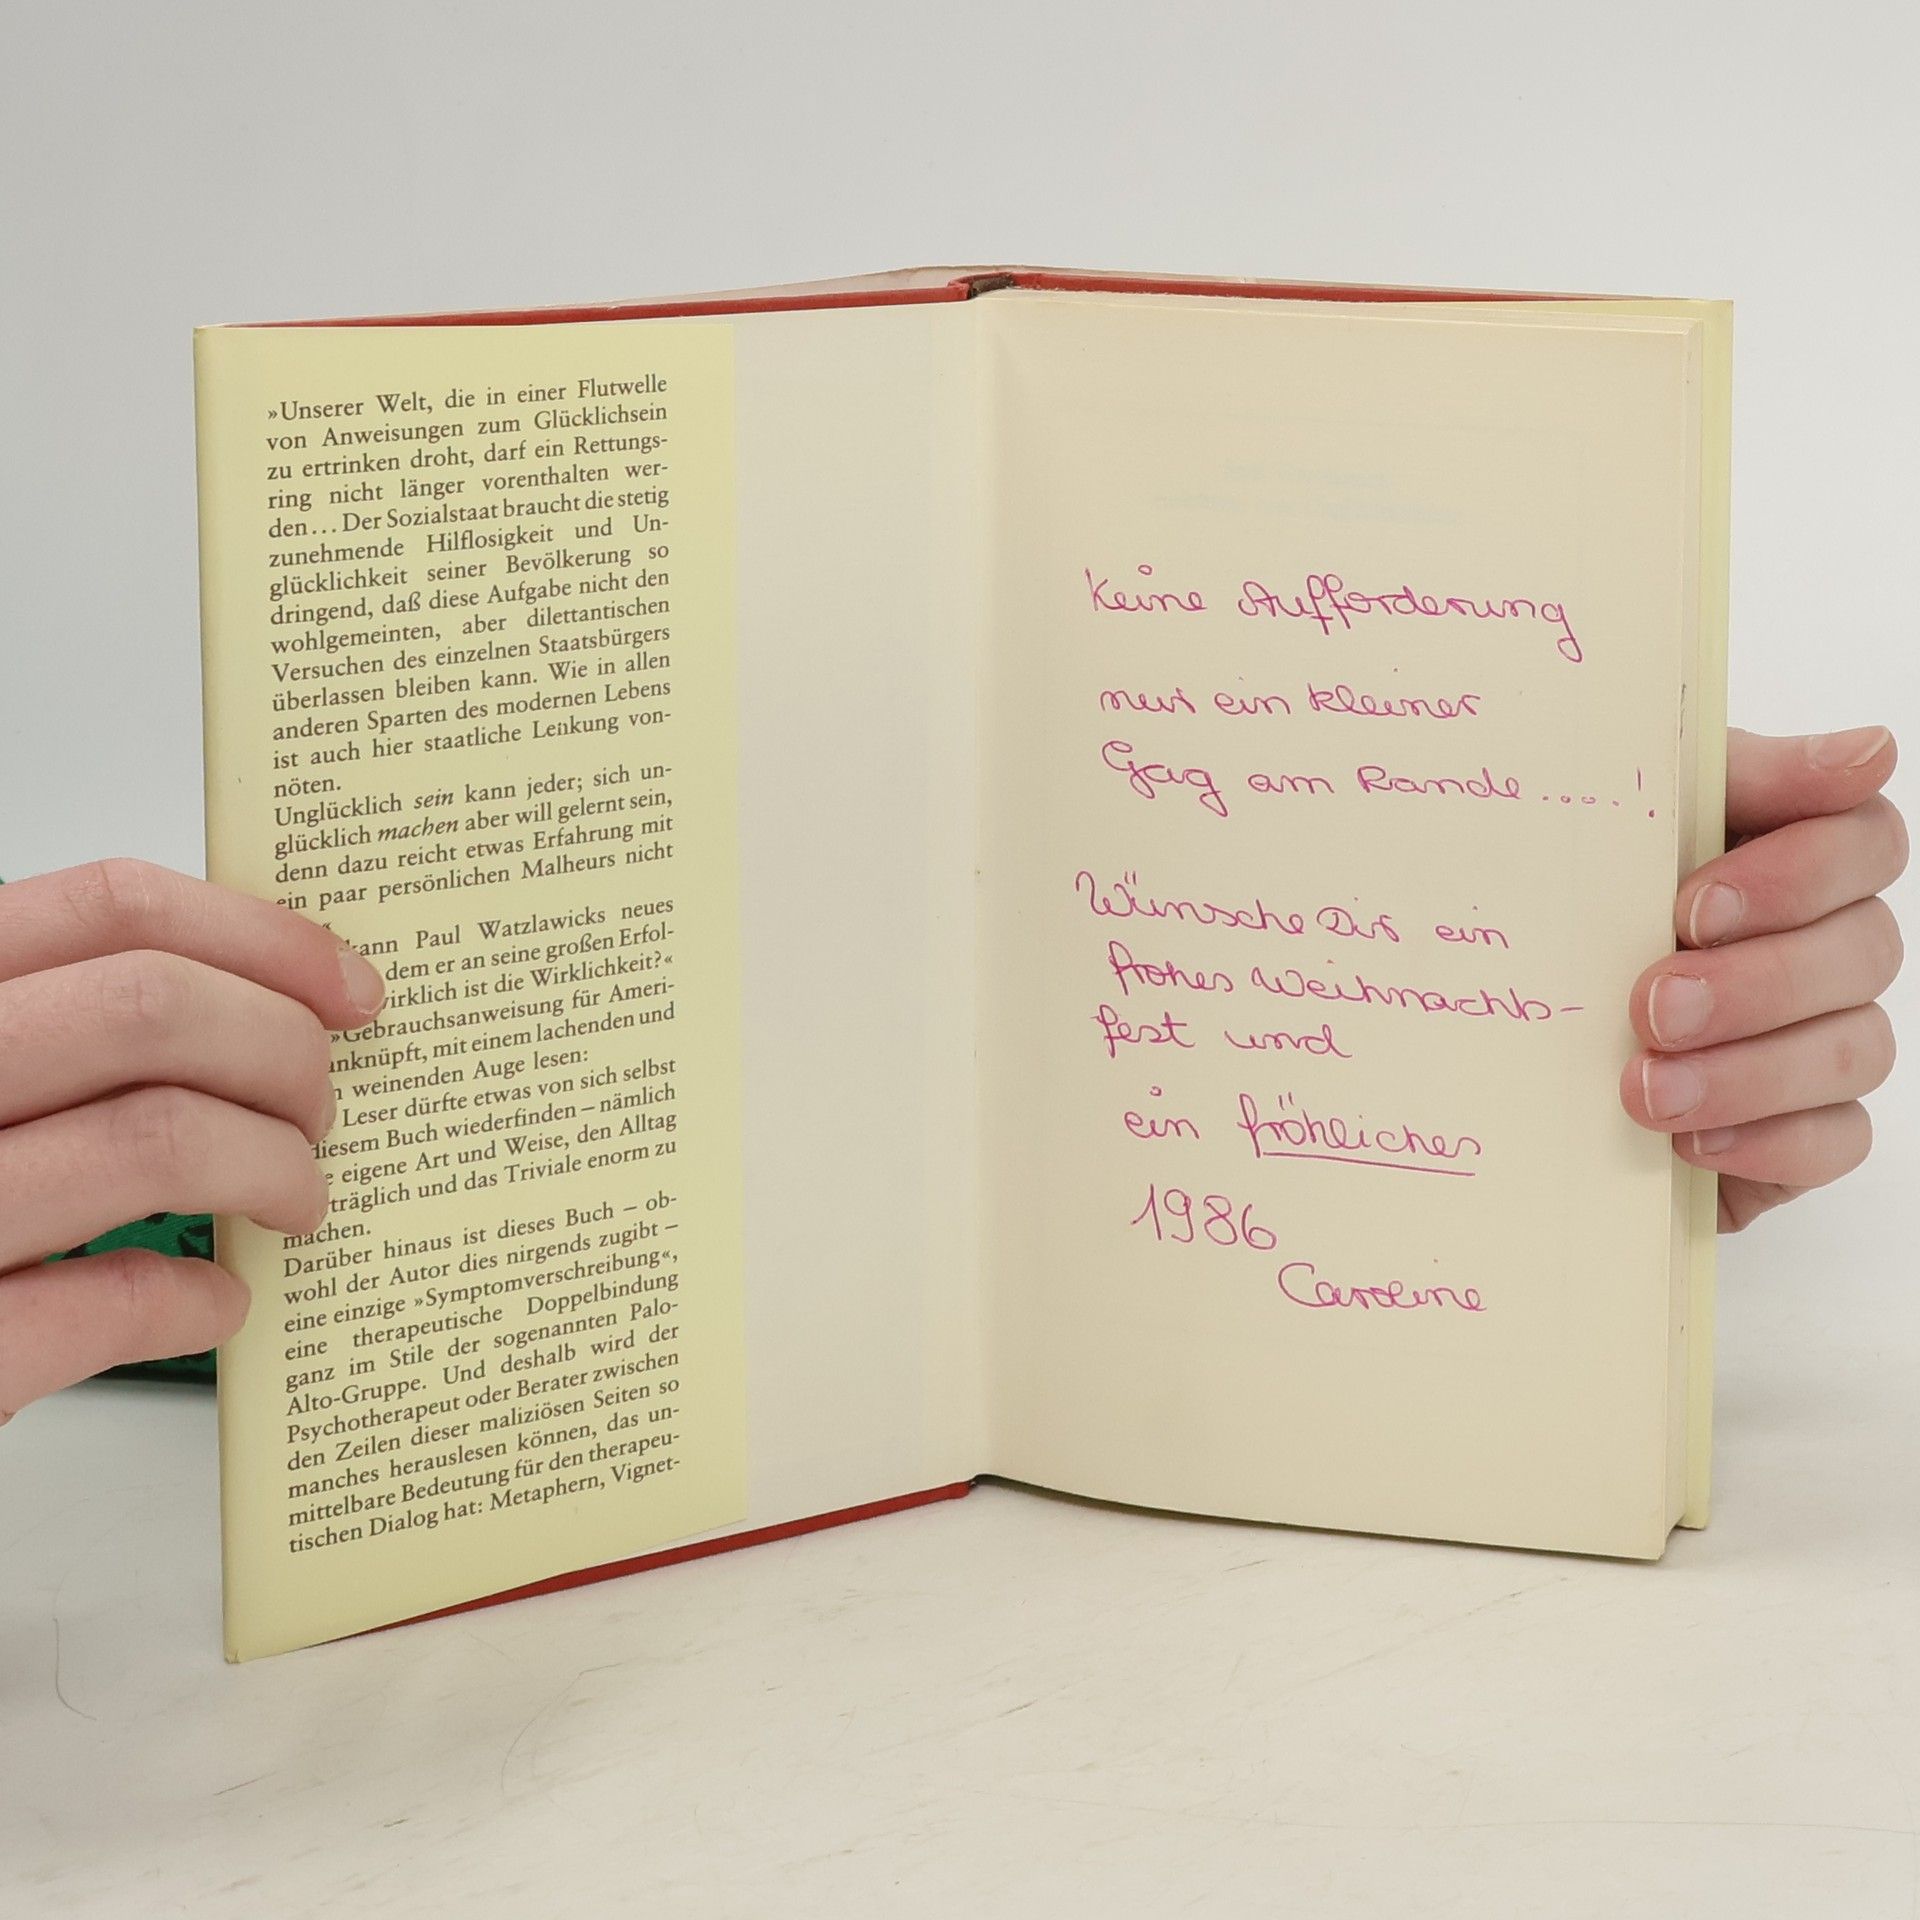 »Unserer Welt, die in einer Flutwelle
von Anweisungen zum Glücklichsein
zu ertrinken droht, darf ein Rettungs-
ring nicht länger vorenthalten wer-
den... Der Sozialstaat braucht die stetig
zunehmende Hilflosigkeit und Un-
glücklichkeit seiner Bevölkerung so
dringend, daß diese Aufgabe nicht den
wohlgemeinten, aber dilettantischen
Versuchen des einzelnen Staatsbürgers
überlassen bleiben kann. Wie in allen
anderen Sparten des modernen Lebens
ist auch hier staatliche Lenkung von-
nöten.
Unglücklich sein kann jeder; sich un-
glücklich machen aber will gelernt sein,
denn dazu reicht etwas Erfahrung mit
ein paar persönlichen Malheurs nicht
kann Paul Watzlawicks neues
dem er an seine großen Erfol-
wirklich ist die Wirklichkeit?«
»Gebrauchsanweisung für Ameri-
anknüpft, mit einem lachenden und
weinenden Auge lesen:
Leser dürfte etwas von sich selbst
diesem Buch wiederfinden – nämlich
eigene Art und Weise, den Alltag
träglich und das Triviale enorm zu
machen.
Darüber hinaus ist dieses Buch – ob-
wohl der Autor dies nirgends zugibt –
eine einzige »Symptomverschreibung«,
eine therapeutische Doppelbindung
ganz im Stile der sogenannten Palo-
Alto-Gruppe. Und deshalb wird der
Psychotherapeut oder Berater zwischen
den Zeilen dieser maliziösen Seiten so
manches herauslesen können, das un-
mittelbare Bedeutung für den therapeu-
tischen Dialog hat: Metaphern, Vignet-
Keine Aufforderung
nur ein kleiner
Gag am Rande.....!
Wünsche Dir ein
frohes Weihnachts-
fest und
ein fröhliches
1986
Caroline